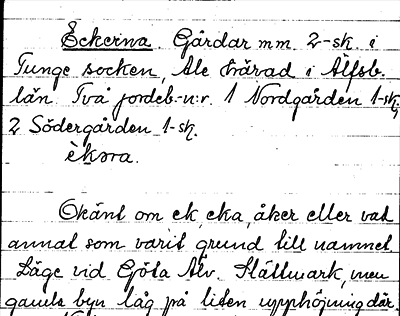 Eckerna. Gårdar mm. 2-sk. i
Tunge socken, Ale härad i Älfsb.
län. Två jordeb.-n:r. 1 Nordgården 1-sk,
2 Södergården 1-sk.
èkɷra.
Okänt om ek, eka, åker eller vad
annat som varit grund till namnet
Läge vid Göta Älv. Slättmark, men
gamla byn låg på liten upphöjning där,